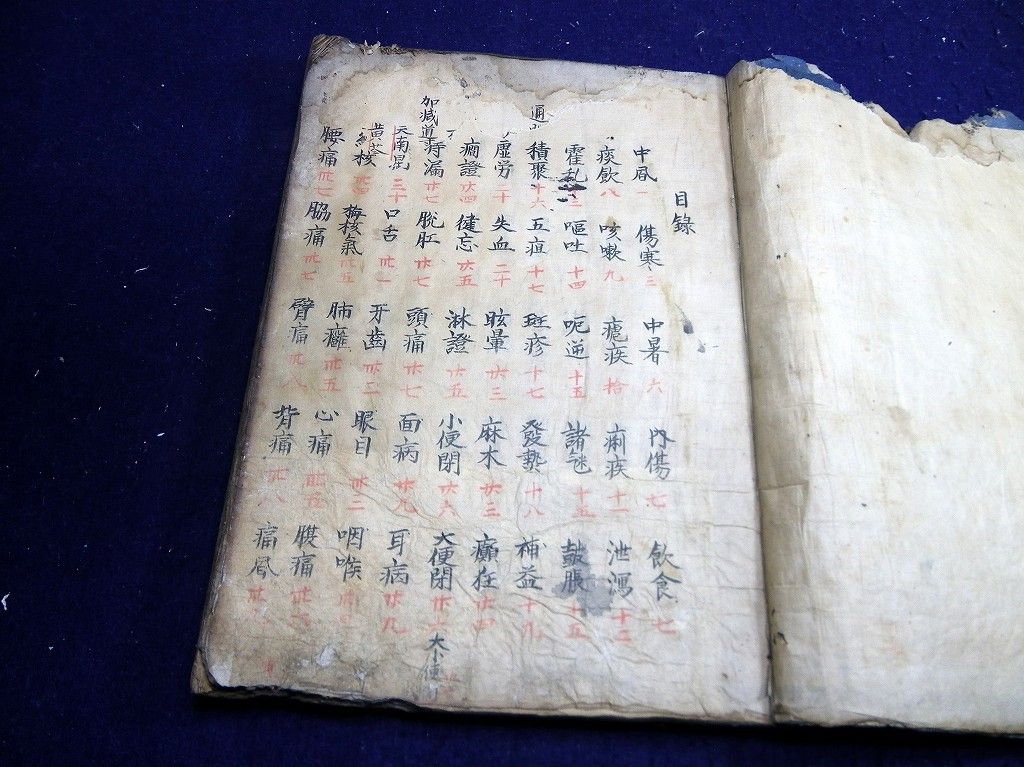 目錄
中風 一 傷寒 三 中暑 六 內傷 七 飲食 七
痰飲 八 咳嗽 九 瘧疾 拾 痢疾 十一 泄瀉 十二
霍乱 嘔吐 十四 呃逆 十五 諸氣 十五 鼓脹 十五
積聚 十六 五疸 十七 斑疹 十七 發熱 十八 補益 十九
虛労 二十 失血 二十 眩暈 廿三 麻木 廿三 癲狂 廿四
癇證 廿四 健忘 廿五 淋證 廿五 小便閉 廿六 大便閉 廿六 大小便
痔漏 廿七 脫肛 廿七 頭痛 廿七 面病 廿九 耳病 廿九
加減
天南星 三十 口舌 卅一 牙齒 卅二 眼目 卅二 咽喉
黃芩
結核 梅核氣 卅五 肺癰 卅五 心痛 卅五 腹痛
腰痛 卅七 脇痛 卅七 臂痛 卅八 背痛 卅八 痛風